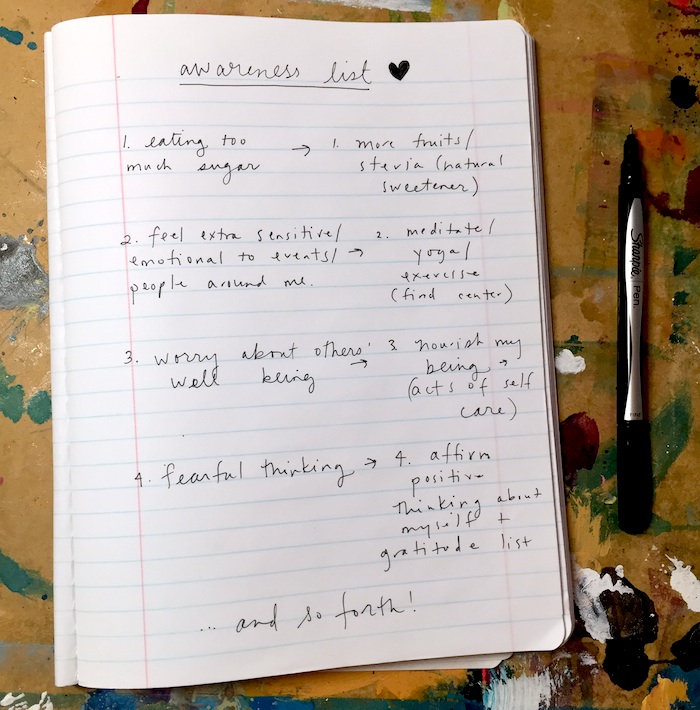 awareness list ♥
1. eating too
much sugar
→ 1. more fruits/
stevia (natural
sweetener)
2. feel extra sensitive/
emotional to events/
people around me.
→ 2. meditate/
yoga/
exercise
(find center)
3. worry about others'
well being
→ 3 nourish my
being →
(acts of self
care)
4. fearful thinking
→ 4. affirm
positive
thinking about
myself +
gratitude list
... and so forth!
Sharpie Pen
FINE